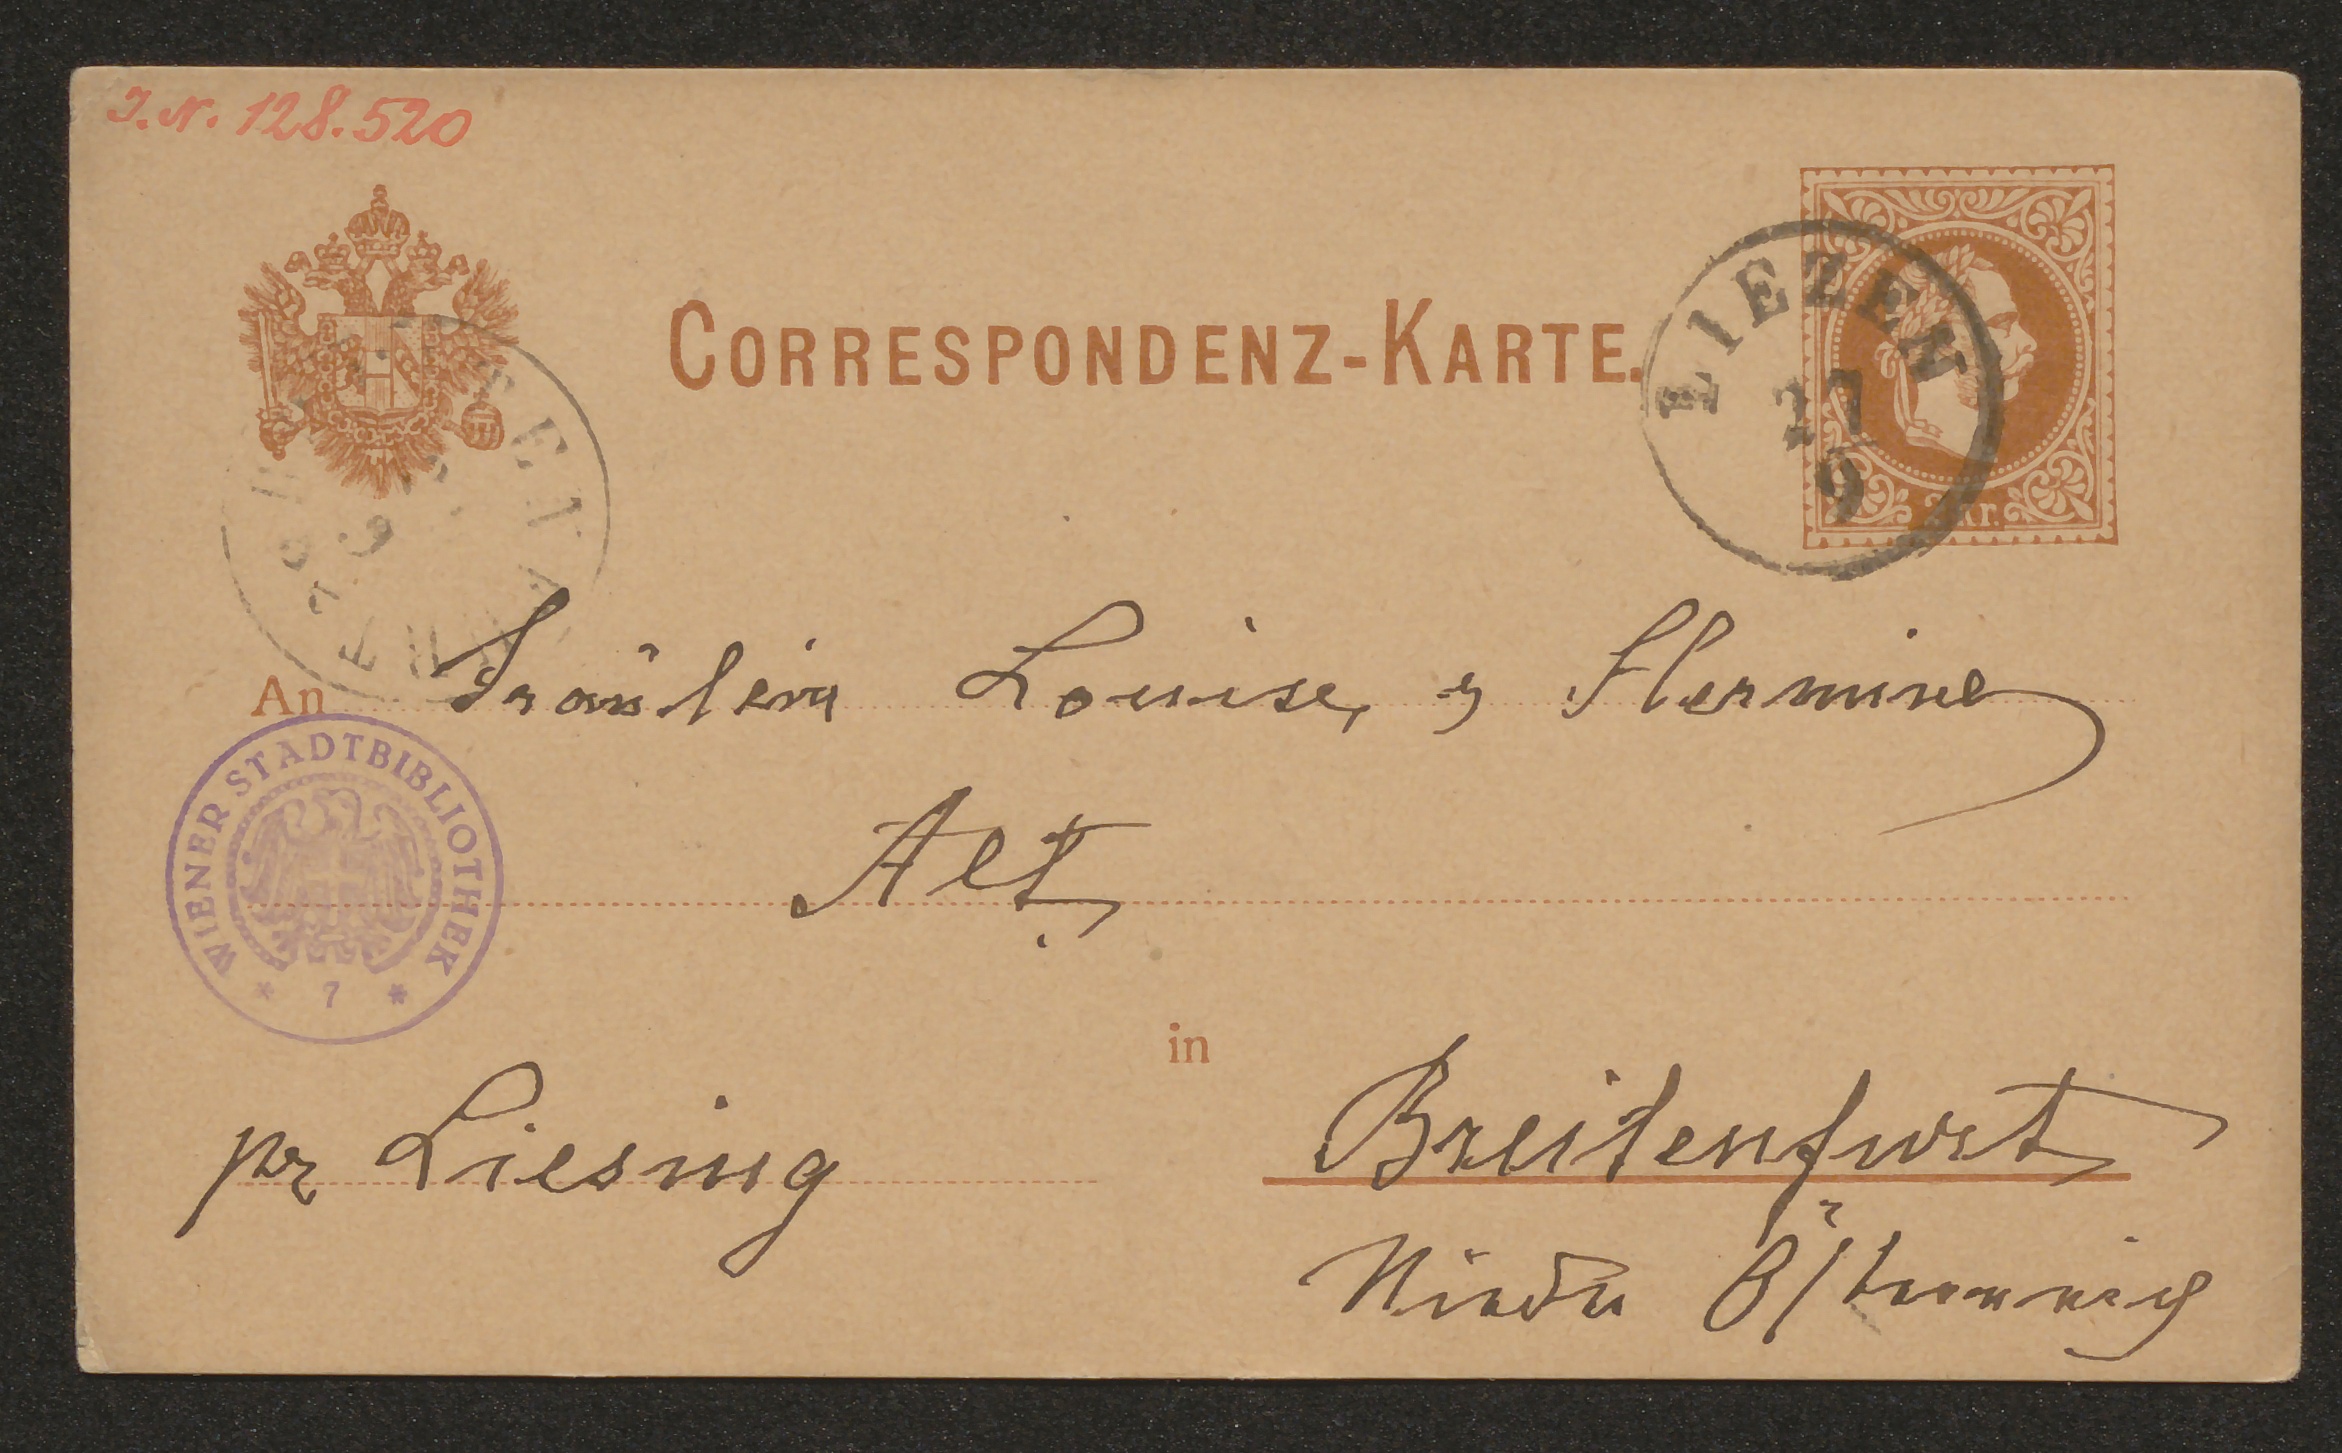 J.N. 128.520
CORRESPONDENZ-KARTE.
LIEZEN
27
9
2 Kr.
An Fräulein Louise, & Hermine
Alt
WIENER STADTBIBLIOTHEK
* 7 *
in
pr Liesing
Breitenfurt
Nieder Österreich